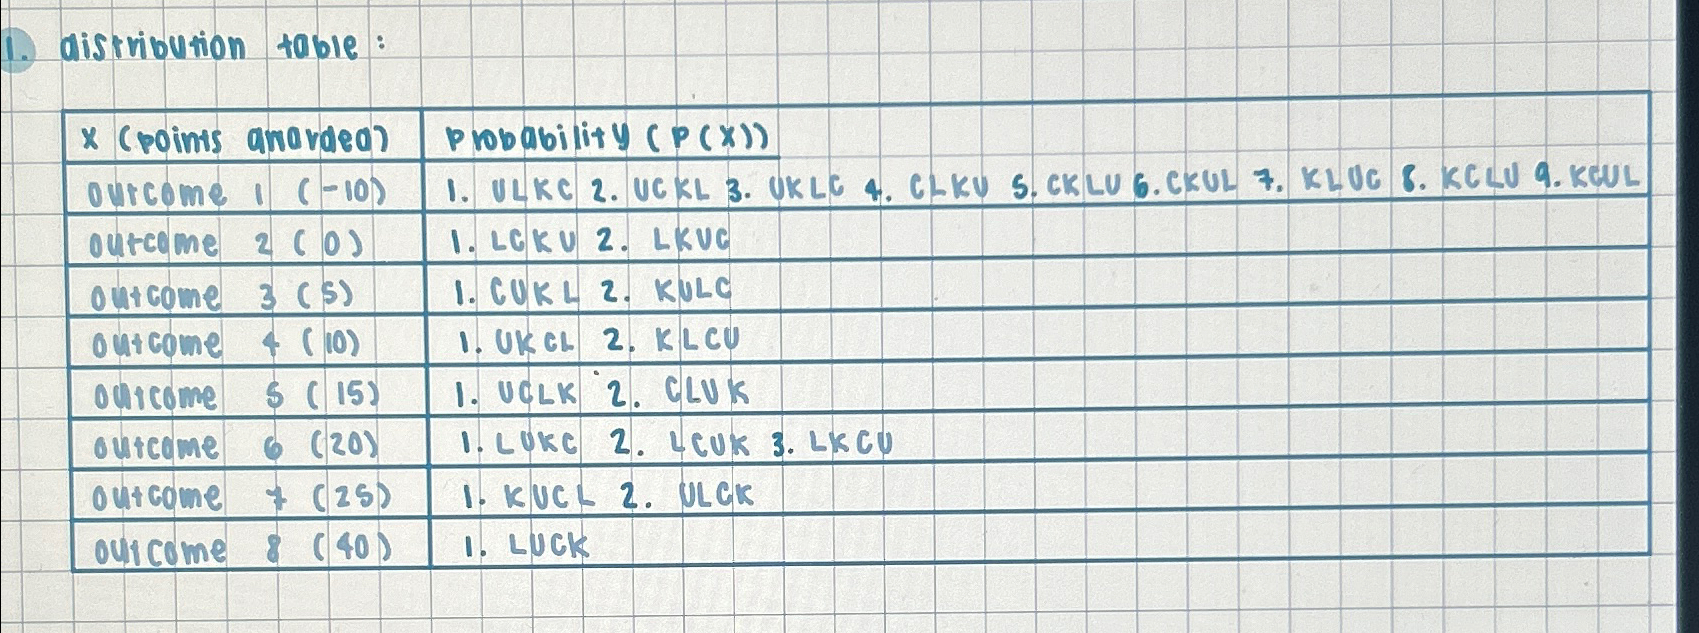 1. distribution table:
X (points awarded) probability (P(X))
outcome 1 (-10) 1. ULKC 2. UCKL 3. UKLC 4. CLKU 5. CKLU 6. CKUL 7. KLUC 8. KCLU 9. KCUL
outcome 2 (0) 1. LCKU 2. LKUC
outcome 3 (5) 1. CUKL 2. KULC
outcome 4 (10) 1. UKCL 2. KLCU
outcome 5 (15) 1. UCLK 2. CLUK
outcome 6 (20) 1. LUKC 2. LCUK 3. LKCU
outcome 7 (25) 1. KUCL 2. ULCK
outcome 8 (40) 1. LUCK